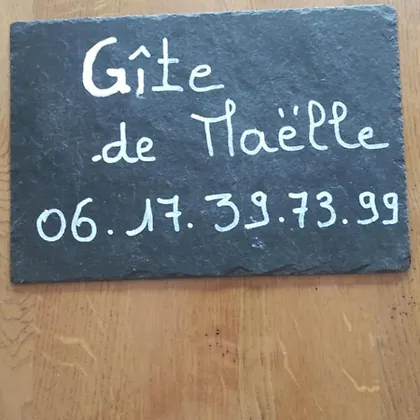 Gîte
de Maëlle
06.17.39.73.99